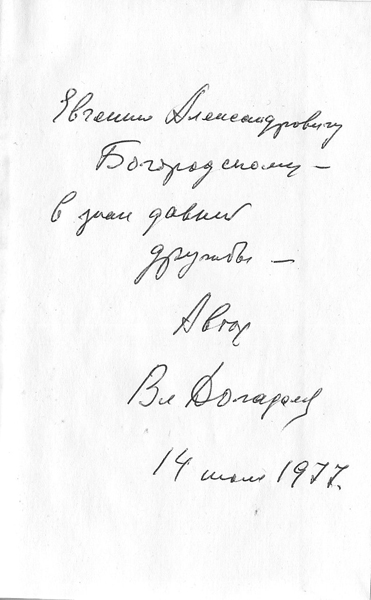 Евгению Александровичу
Богородскому –
в знак давней
дружбы –
Автор
Вл
14 июля 1977.